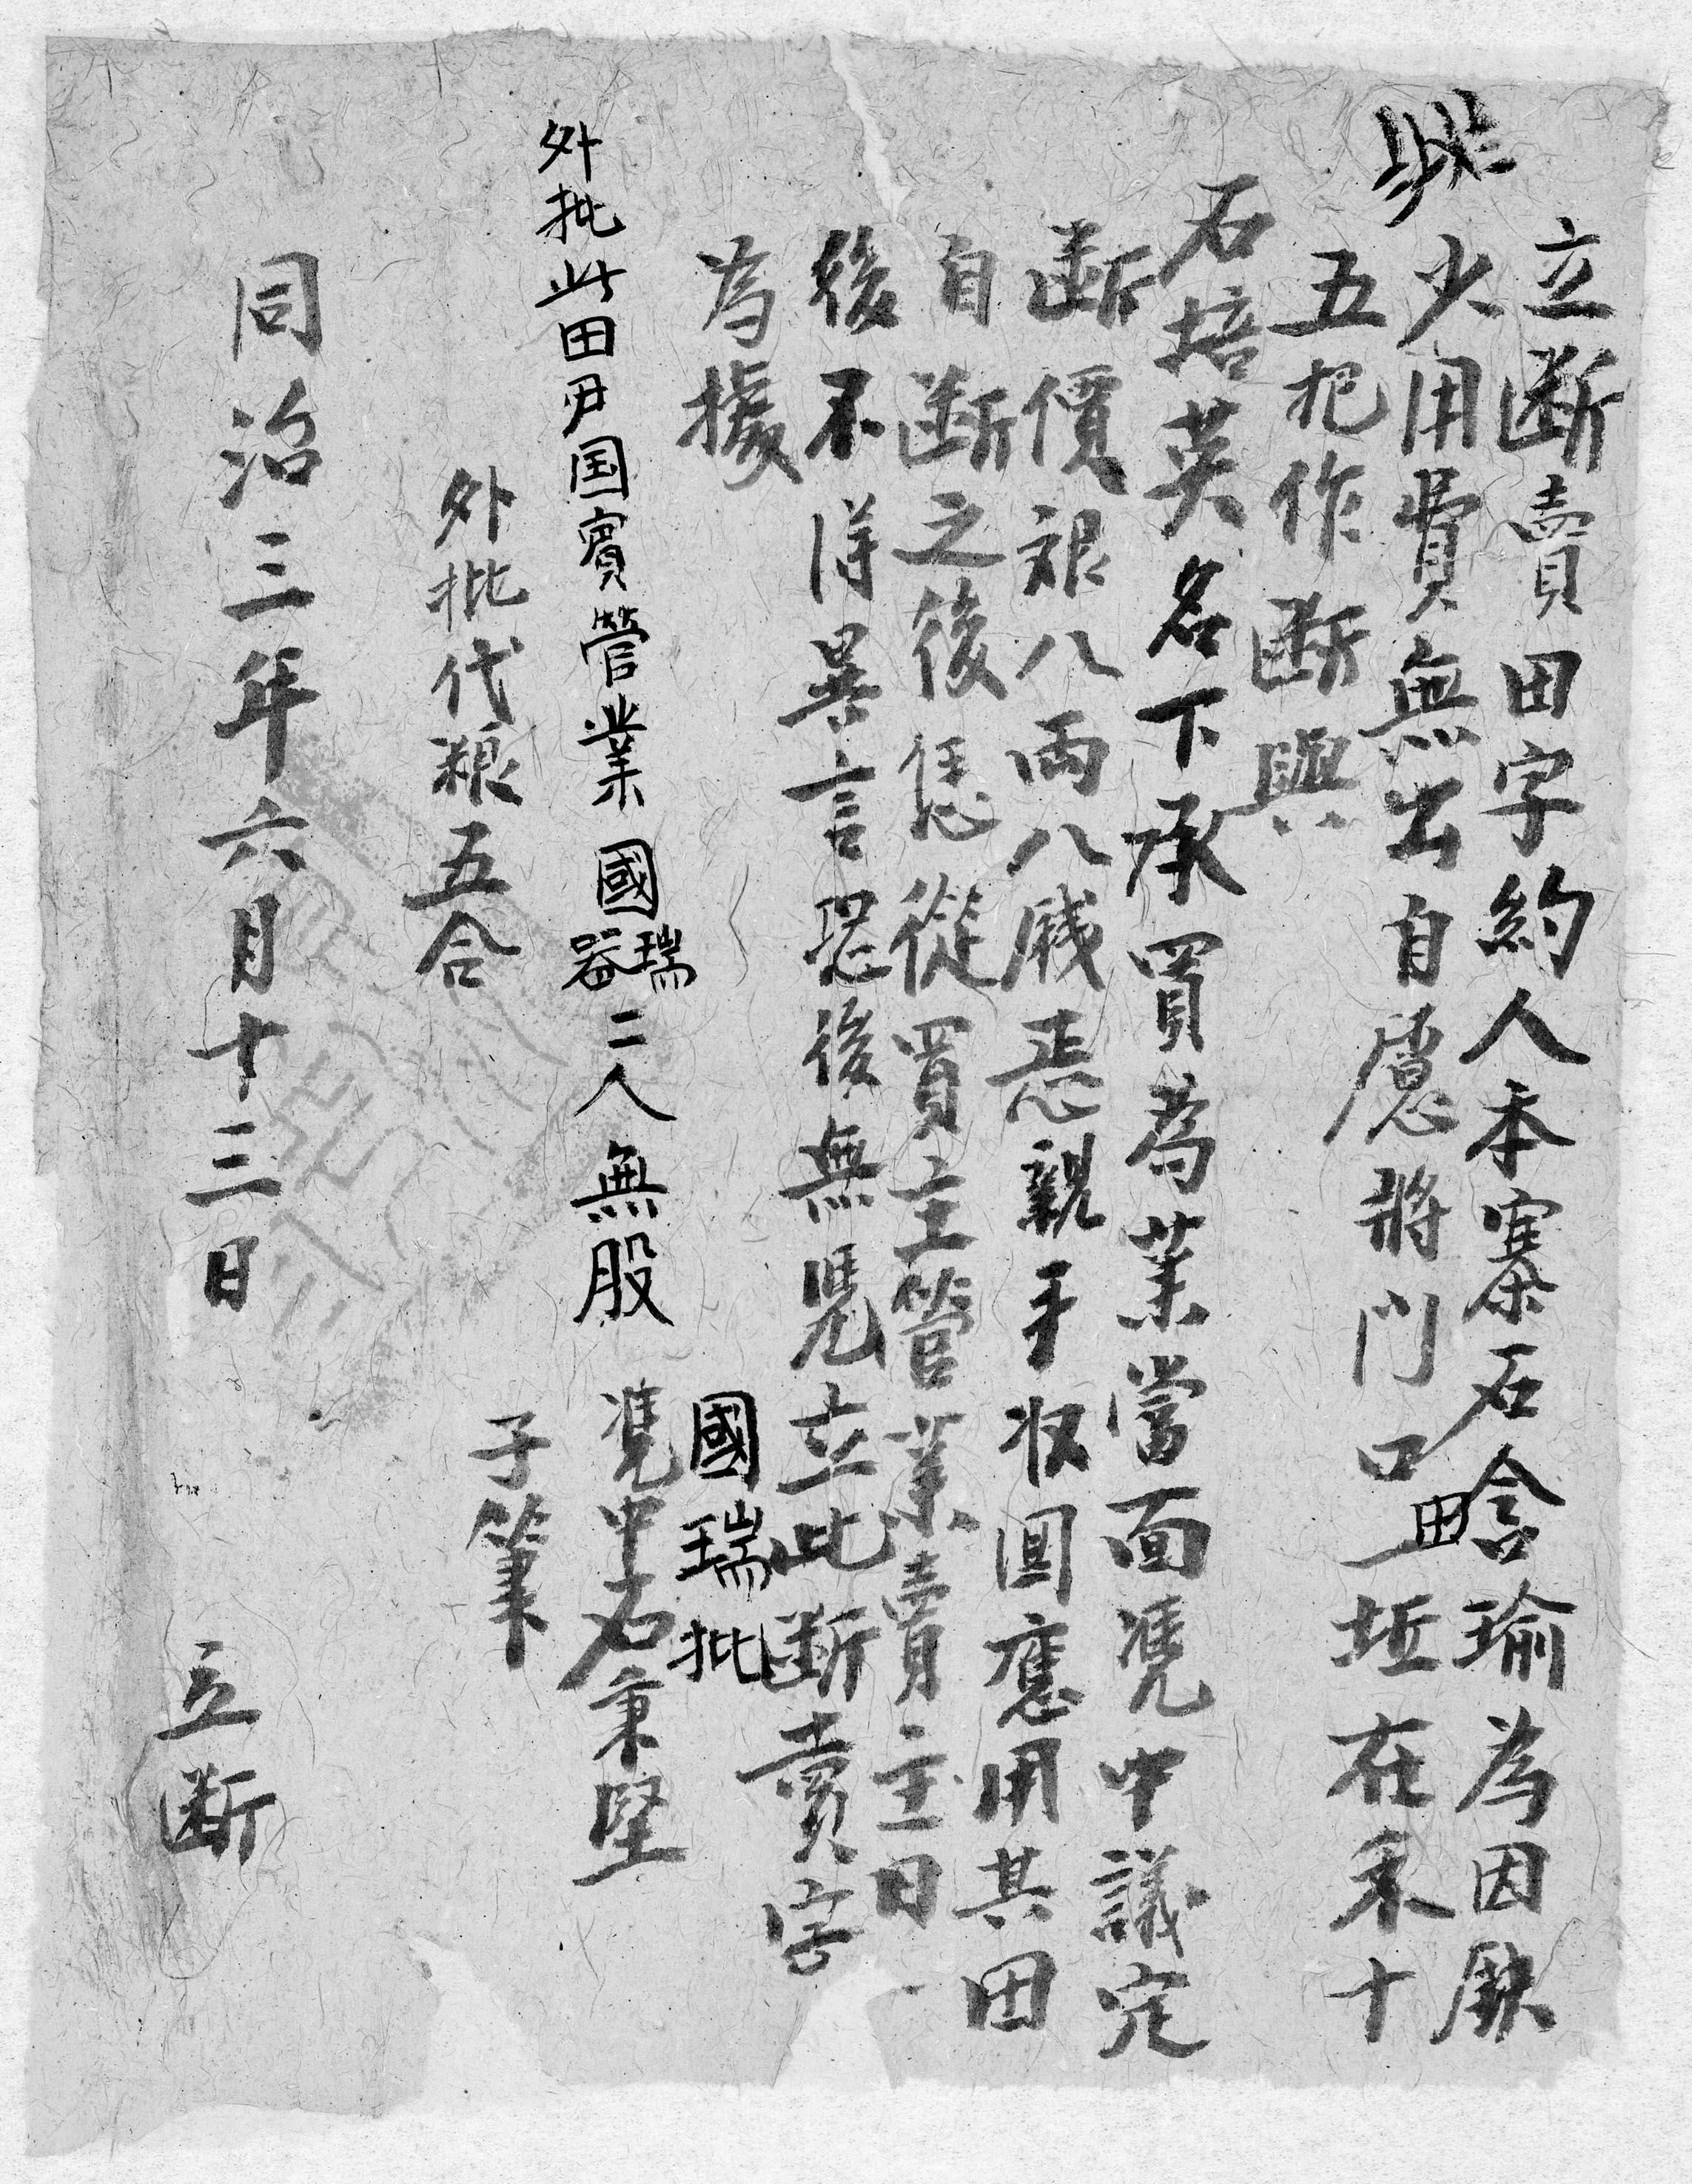 立断賣田字約人本寨石含瑜為因缺
少用費無出自愿將門口田一坵在禾十
五把作断與
石掊英名下承買為業當面凭中議定
断價艮八両八戔正親手收圓應用其田
自断之後恁從買主管業賣主日
後不得異言恐後無凴立此断賣字
為據
國瑞批
外批此田尹国賓管業國瑞器二人無股
凴中石秉堅
外批代粮五合
子筆
同治三年六月十三日 立断